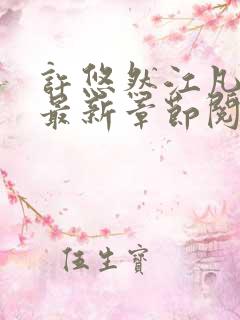 許悠然江凡
最新章節閱
任生寶